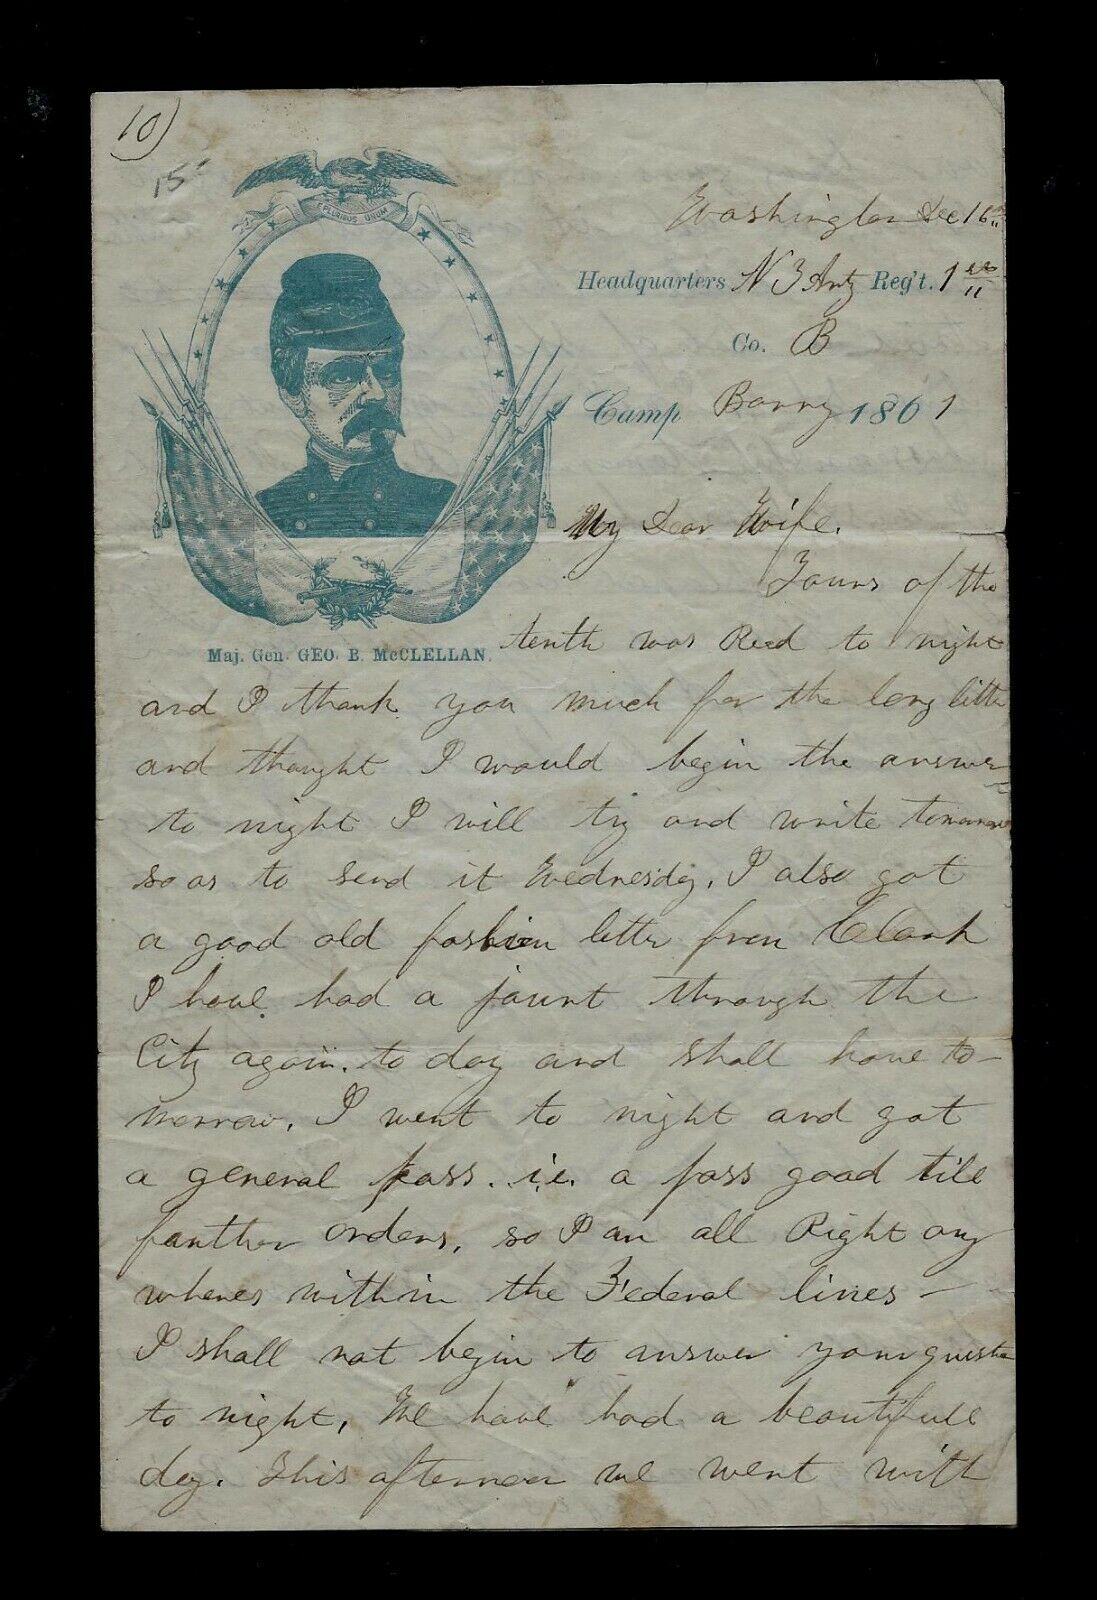 10)
15
E PLURIBUS UNUM
Washington Dec 16th
Headquarters N Y Arty Reg't. 1st
Co. B
Camp Barry 1861
Maj. Gen. GEO. B. McCLELLAN.
My Dear Wife.
Yours of the
tenth was Recd to night
and I thank you much for the long letter
and thought I would begin the answer
to night I will try and write tomorrow
so as to send it Wednesday. I also got
a good old fashion letter from Clark
I have had a jaunt through the
City again. to day and shall have to-
morrow. I went to night and got
a general pass. i.e. a pass good till
further orders, so I am all Right any
wheres within the Federal lines -
I shall not begin to answer your
to night. We have had a beautifull
day. This afternoon we went with